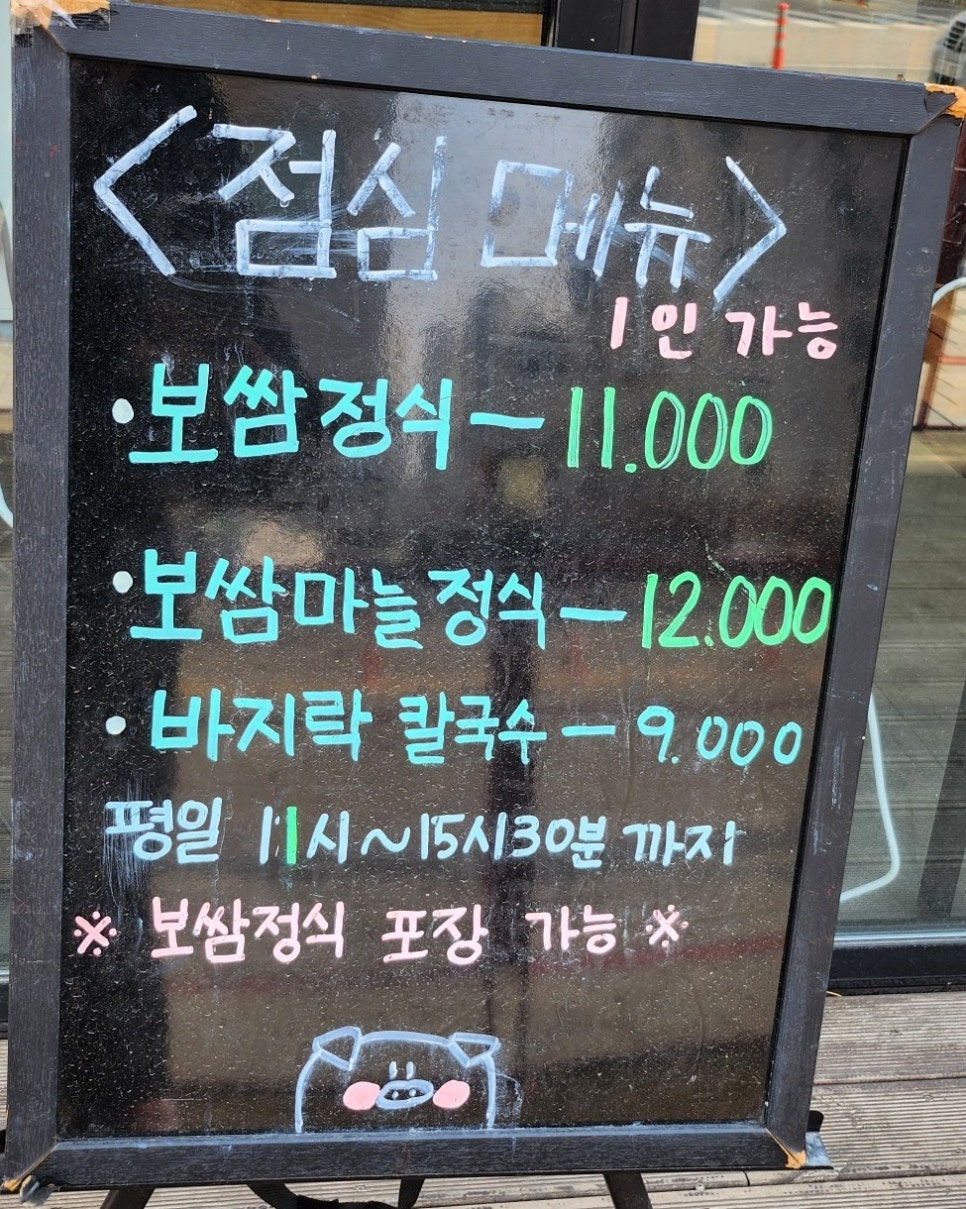 <점심 메뉴>
1인 가능
·보쌈정식 — 11.000
·보쌈마늘정식 — 12.000
·바지락 칼국수 — 9.000
평일 11시~15시30분 까지
※ 보쌈정식 포장 가능 ※